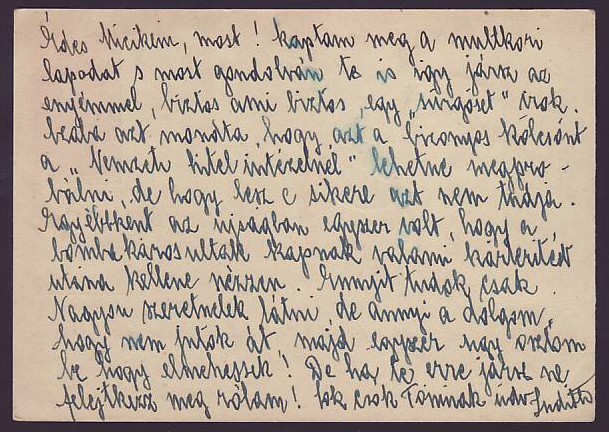 Édes Micikém, most! kaptam meg a multkori
lapodat s most gondolván te is igy jársz az
enyémmel, biztos ami biztos, egy „sürgőset" irok.
azt mondta, hogy azt a bizonyos kölcsönt
a „Nemzeti hitel intézetnél" lehetne megpro-
bálni, de hogy lesz e sikere azt nem tudja.
Egyébbként az ujságban egyszer volt, hogy a
bombakárosultak kapnak valami kártéritést
utána kellene nézzen. Ennyit tudok csak.
Nagyon szeretnélek látni, de annyi a dolgom,
hogy nem jutok át, majd egyszer ugy osztom
be hogy elmehessek! De ha te erre jársz ne
felejtkezz meg rólam! Sok csók Tominak üdv Juditto